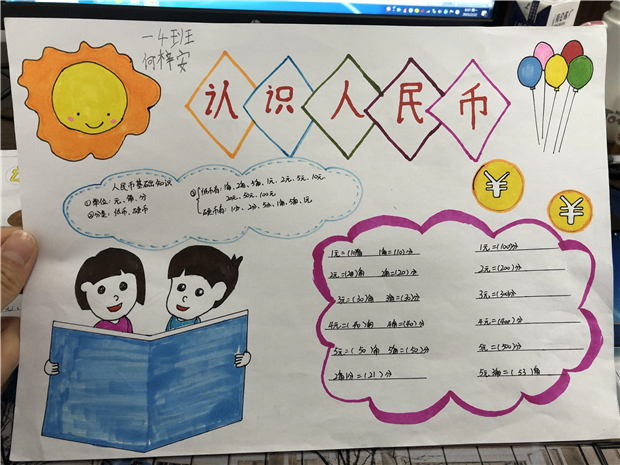 一4班
何梓安
认识人民币
人民币基础知识
①单位：元、角、分
②分类：纸币、硬币
③纸币有：1角、2角、5角、1元、2元、5元、10元
20元、50元、100元
硬币有：1分、2分、5分、1角、5角、1元
¥
¥
1元=(10)角 1角=(10)分 1元=(100)分
2元=(20)角 2角=(20)分 2元=(200)分
3元=(30)角 3角=(30)分 3元=(300)分
4元=(40)角 4角=(40)分 4元=(400)分
5元=(50)角 5角=(50)分 5元=(500)分
2角1分=(21)分 5元3角=(53)角